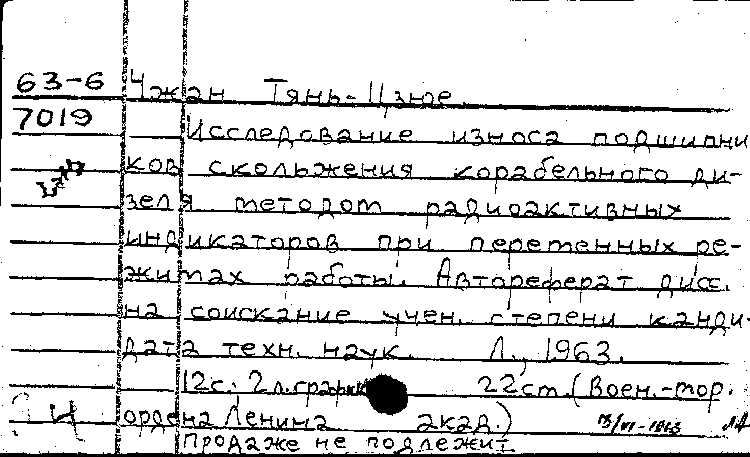 63-6 Чжан Тянь-Цзюе
7019 Исследование износа подшипни
ков скольжения корабельного ди-
зеля методом радиоактивных
индикаторов при переменных ре-
жимах работы. Автореферат дисс.
на соискание учен. степени канди-
дата техн. наук. Л., 1963.
12 с.; 2 л. график 22 см. (Воен.-мор.
ордена Ленина акад.) 13/VI-1963
Продаже не подлежит